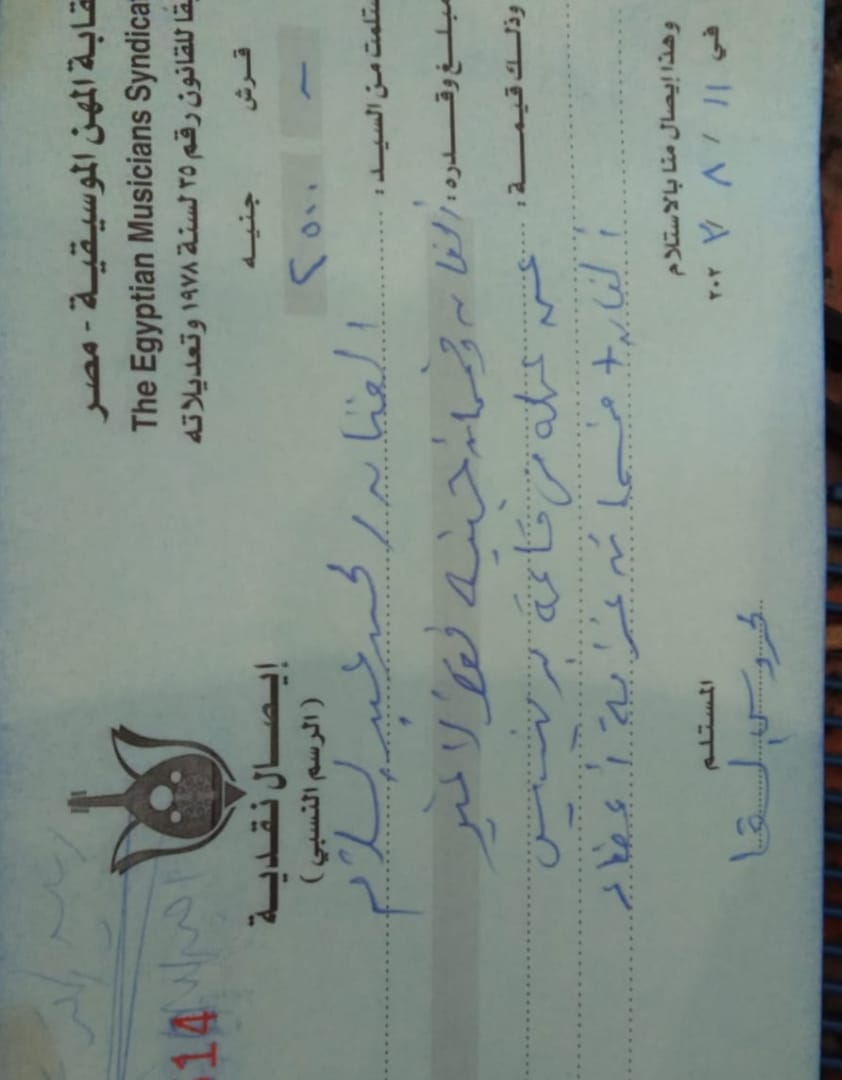 قابة المهن الموسيقية - مصر
The Egyptian Musicians Syndica
قا للقانون رقم ٣٥ لسنة ١٩٧٨ وتعديلاته
614
إيصال نقدية
(الرسم النسبي)
قرش جنيه
- ٢٥٠٠
ستلمت من السيد : الفنان / محمد عبد السلام
مبلغ وقدره : ألفان وخمسمائة جنيه فقط لا غير
وذلك قيمة : عن حفله من قاعة
ألفان + خمسمائة غرامة أعضاء
وهذا إيصال منا بالاستلام
في ١١ / ٨ / ٢٠٢
المستلم